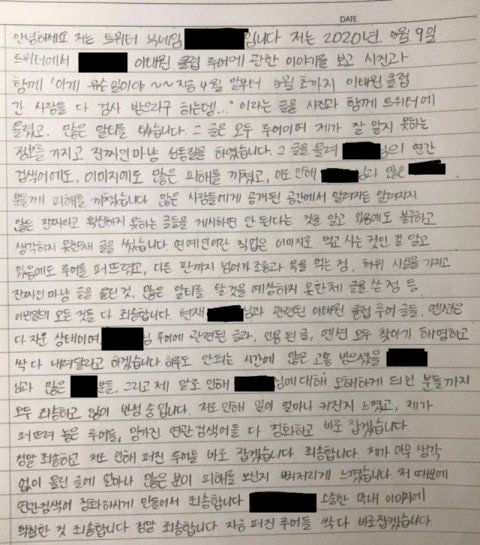 DATE.
안녕하세요 저는 트위터 닉네임 입니다 저는 2020년 5월 9일
트위터에서 이태원 클럽 루머에 관한 이야기를 보고 사진과
함께 '이게 무슨 일이야 ~~ 지금 4월 말부터 5월 초까지 이태원 클럽
간 사람들 다 검사 받으라구 하는데...' 이라는 글을 사진과 함께 트위터에
올렸고, 많은 알티를 탔습니다. 그 글은 모두 루머이며 제가 잘 알지 못하는
정보를 가지고 진짜인 마냥 선동질을 하였습니다. 그 글을 올려 님의 연관
검색어에도, 이미지에도 많은 피해를 끼쳤고, 저로 인해 님과 많은
분들께 피해를 끼쳤습니다. 많은 사람들에게 공개된 공간에서 알려지든 알려지지
않든 진짜라고 확신하지 못하는 글들을 게시하면 안 된다는 것을 알고 있음에도 불구하고
생각하지 못한채 글을 썼습니다. 연예인이란 직업은 이미지로 먹고 사는 것인 걸 알고
있음에도 루머를 퍼뜨렸고, 다른 판까지 넘어가 조롱과 욕을 먹는 점, 허위 사실을 가지고
진짜인 마냥 글을 올린 것, 많은 알티를 탈 것을 예상하지 못한채 글을 쓴 점 등
이번일의 모든 것들 다 죄송합니다. 현재 님과 관련된 이태원 클럽 루머 글들, 멘션은
다 지운 상태이며 님 루머에 관련된 글과, 인용 된 글, 멘션 모두 찾아가 해명하고
싹 다 내려달라고 하겠습니다. 하루도 안되는 시간에 많은 고통 받으셨을
님과 많은 분들, 그리고 제 말로 인해 님에 대해 오해하게 되신 분들까지
모두 죄송하고 많이 반성 중입니다. 저로 인해 일이 얼마나 커진지 느꼈고, 제가
퍼뜨려 놓은 루머들, 망가진 연관 검색어들 다 정화하고 바로 잡겠습니다.
정말 죄송하고 저로 인해 퍼진 루머들 바로 잡겠습니다. 죄송합니다. 제가 아무 생각
없이 올린 글에 얼마나 많은 분이 피해를 보신지 뼈저리게 느꼈습니다. 저 때문에
연관검색어 정화하시게 만들어서 죄송합니다 소중한 막내 이미지에
먹칠한 것 죄송합니다. 정말 죄송합니다 지금 퍼진 루머들 싹 다 바로잡겠습니다.